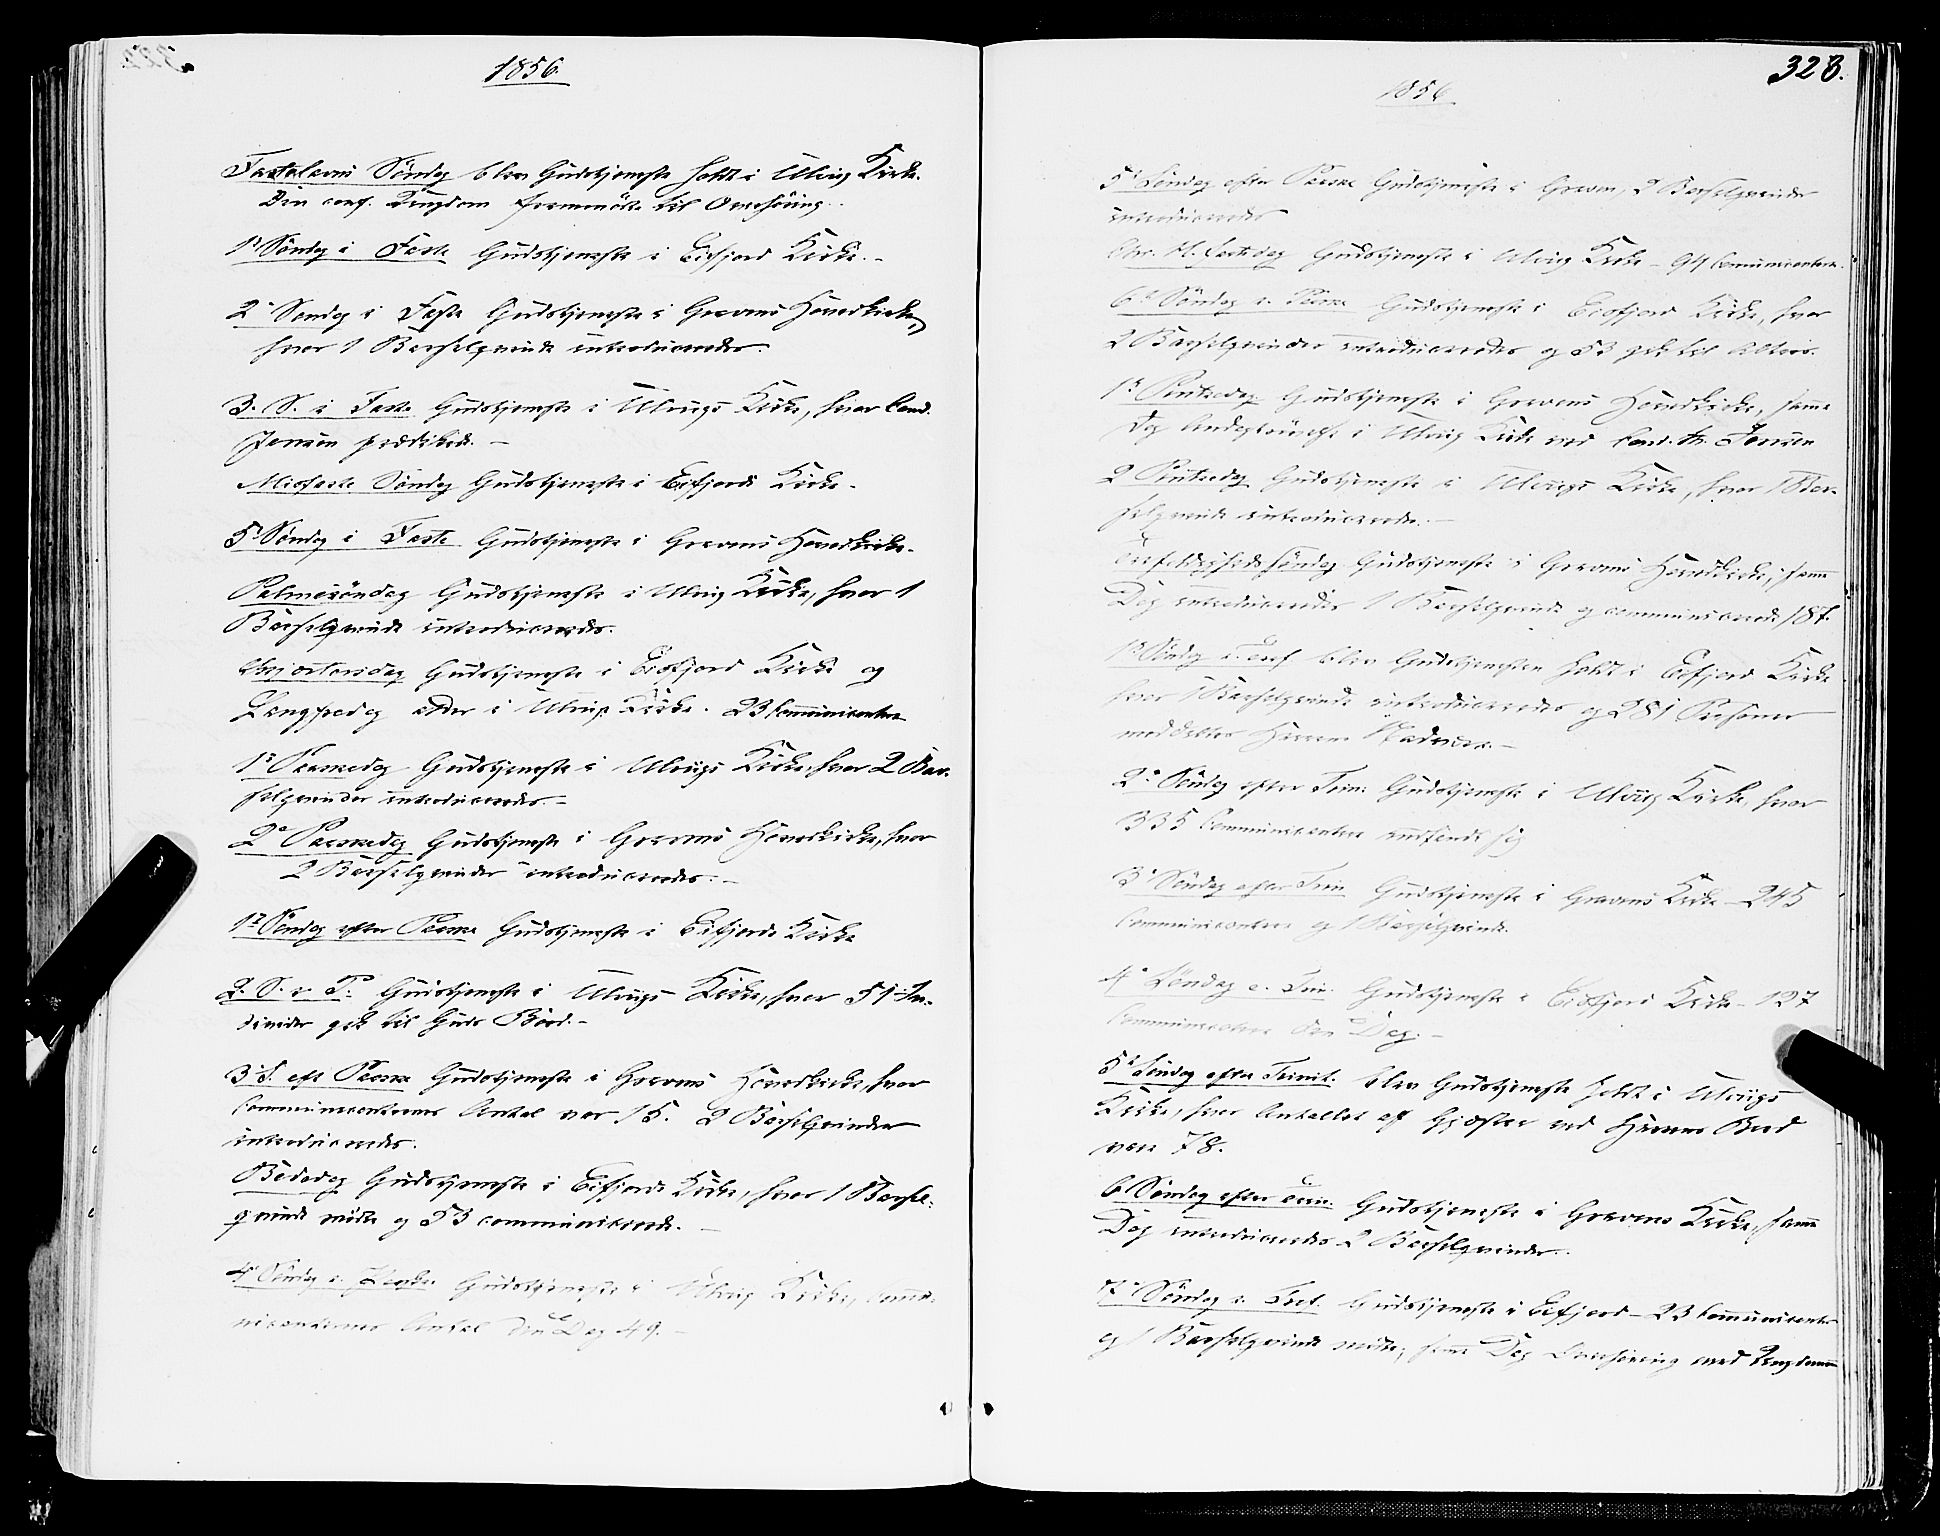 1856.
Fastelavns Søndag blev Gudstjeneste holdt i Ulvig Kirke.
Den conf. Ungdom fremmødte til Overhöring.
1ste Søndag i Faste Gudstjeneste i Eidfjord Kirke. -
2den Søndag i Faste Gudstjeneste i Graven Hovedkirke,
hvor 1 Barselqvinde introduceredes.
3. S. i Faste Gudstjeneste i Ulvigs Kirke, hvor Cand.
Jensen prædikede. -
Midfaste Søndag Gudstjeneste i Eidfjords Kirke.
5te Søndag i Faste Gudstjeneste i Gravens Hovedkirke.
Palmesøndag Gudstjeneste i Ulvig Kirke, hvor 1
Barselqvinde introduceredes.
Skjærtorsdag Gudstjeneste i Eidfjord Kirke og
Langfredag i Ulvigs Kirke. 23 Communicanter
1ste Paaskedag Gudstjeneste i Ulvigs Kirke, hvor 2 Bar-
selqvinder introduceredes -
2den Paaskedag Gudstjeneste i Gravens Hovedkirke, hvor
2 Barselqvinder introduceredes. -
1ste Søndag efter Paaske Gudstjeneste i Eidfjords Kirke
2. S. e. P. Gudstjeneste i Ulvigs Kirke, hvor 51 In-
divider gik til Guds Bord. -
3die S. eft Paaske Gudstjeneste i Gravens Hovedkirke, hvor
Communicanternes Antal var 15. 2 Barselqvinder
introduceredes.
Bededag Gudstjeneste i Eidfjords Kirke, hvor 1 Barsel-
qvinde mödte og 53 communicerede. -
4de Søndag e. Paaske Gudstjeneste i Ulvig Kirke, Commu-
nicanternes Antal den Dag 49. -
328.
1856.
5te Søndag efter Paaske Gudstjeneste i Graven, 2 Barselqvinder
introduceredes
Chr. H. Fartsdag Gudstjeneste i Ulvig Kirke - 94 Communicanter.
6te Søndag e. Paaske Gudstjeneste i Eidfjord Kirke, hvor
2 Barselqvinder introduceredes og 53 gik til Alters.
1ste Pintsedag Gudstjeneste i Gravens Hovedkirke, samme
Dag i Ulvig Kirke ved Cand. th. Jensen
2 Pintsedag Gudstjeneste i Ulvigs Kirke, hvor 1 Bar-
selqvinde introduceredes. -
Trefoldigheds Søndag Gudstjeneste i Gravens Hovedkirke, samme
Dag introduceredes 1 Barselqvinde og communicerede 187.
1ste Søndag e. Tref blev Gudstjenesten holdt i Eidfjord Kirke
hvor 1 Barselqvinde introduceredes og 281 Personer
meddeltes Herrens Nadvere. -
2den Søndag efter Trin: Gudstjeneste i Ulvig Kirke, hvor
335 Communicanter indfandt sig
3die Søndag efter Trin Gudstjeneste i Gravens Kirke - 245
Communicanter og 1 Barselqvinde.
4de Søndag e. Trin. Gudstjeneste i Eidfjord Kirke - 127
Communicanter den Dag. -
5te Søndag efter Trinit. blev Gudstjeneste holdt i Ulvigs
Kirke, hvor Antallet af Gjæster ved Herrens Bord
vare 78.
6 Søndag efter Trin. Gudstjeneste i Gravens Kirke, samme
Dag introduceredes 2 Barselqvinder.
7de Søndag e. Tref. Gudstjeneste i Eidfjord - 23 Communicanter
og 1 Barselqvinde mödte, samme Dag Overhöring med Ungdommen